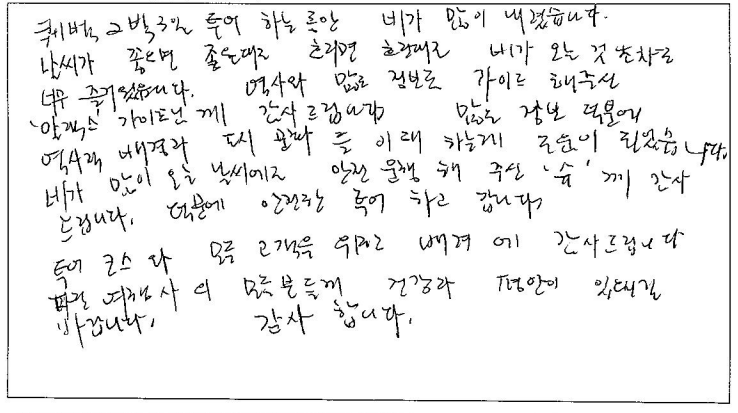 퀘벡 2박3일 투어 하는 동안 비가 많이 내렸습니다.
날씨가 좋으면 좋은대로 흐리면 흐린대로 비가 오는 것 조차도
너무 즐거웠습니다. 역사와 많은 정보로 가이드 해주신
'알렉스' 가이드님 께 감사드립니다 많은 정보 덕분에
역사적 배경과 도시 문화 를 이해 하는데 도움이 되었습니다.
비가 많이 오는 날씨에도 안전 운행 해 주신 '숀' 께 감사
드립니다. 덕분에 안전한 투어 하고 갑니다.
투어 코스 다 모든 고객을 위한 배려 에 감사드립니다
여행사 의 모든분들께 건강과 평안이 있대길
바랍니다. 감사 합니다.